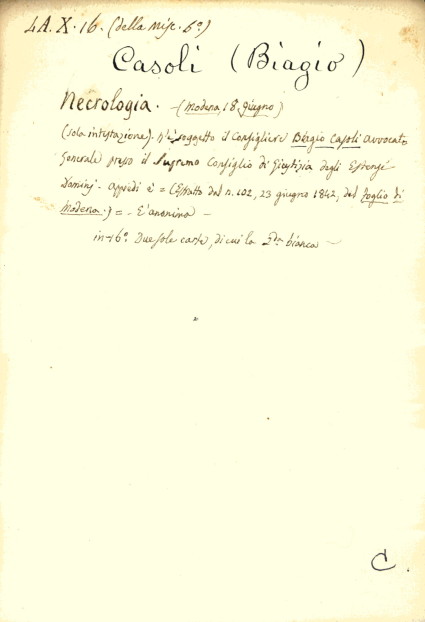 LA. X. 16. (della Misc. 6ª)
Casoli (Biagio)
Necrologia. - (Modena, 18. giugno)
(sola intestazione). N'è soggetto il Consigliere Biagio Casoli Avvocato
Generale presso il Supremo Consiglio di Giustizia degli Estensi
Dominj. Appiedi è = (Estratto dal n. 102, 23 giugno 1842, del Foglio di
Modena.) = - E' anonima -
in-16º. Due sole carte, di cui la 2da. bianca -
C.